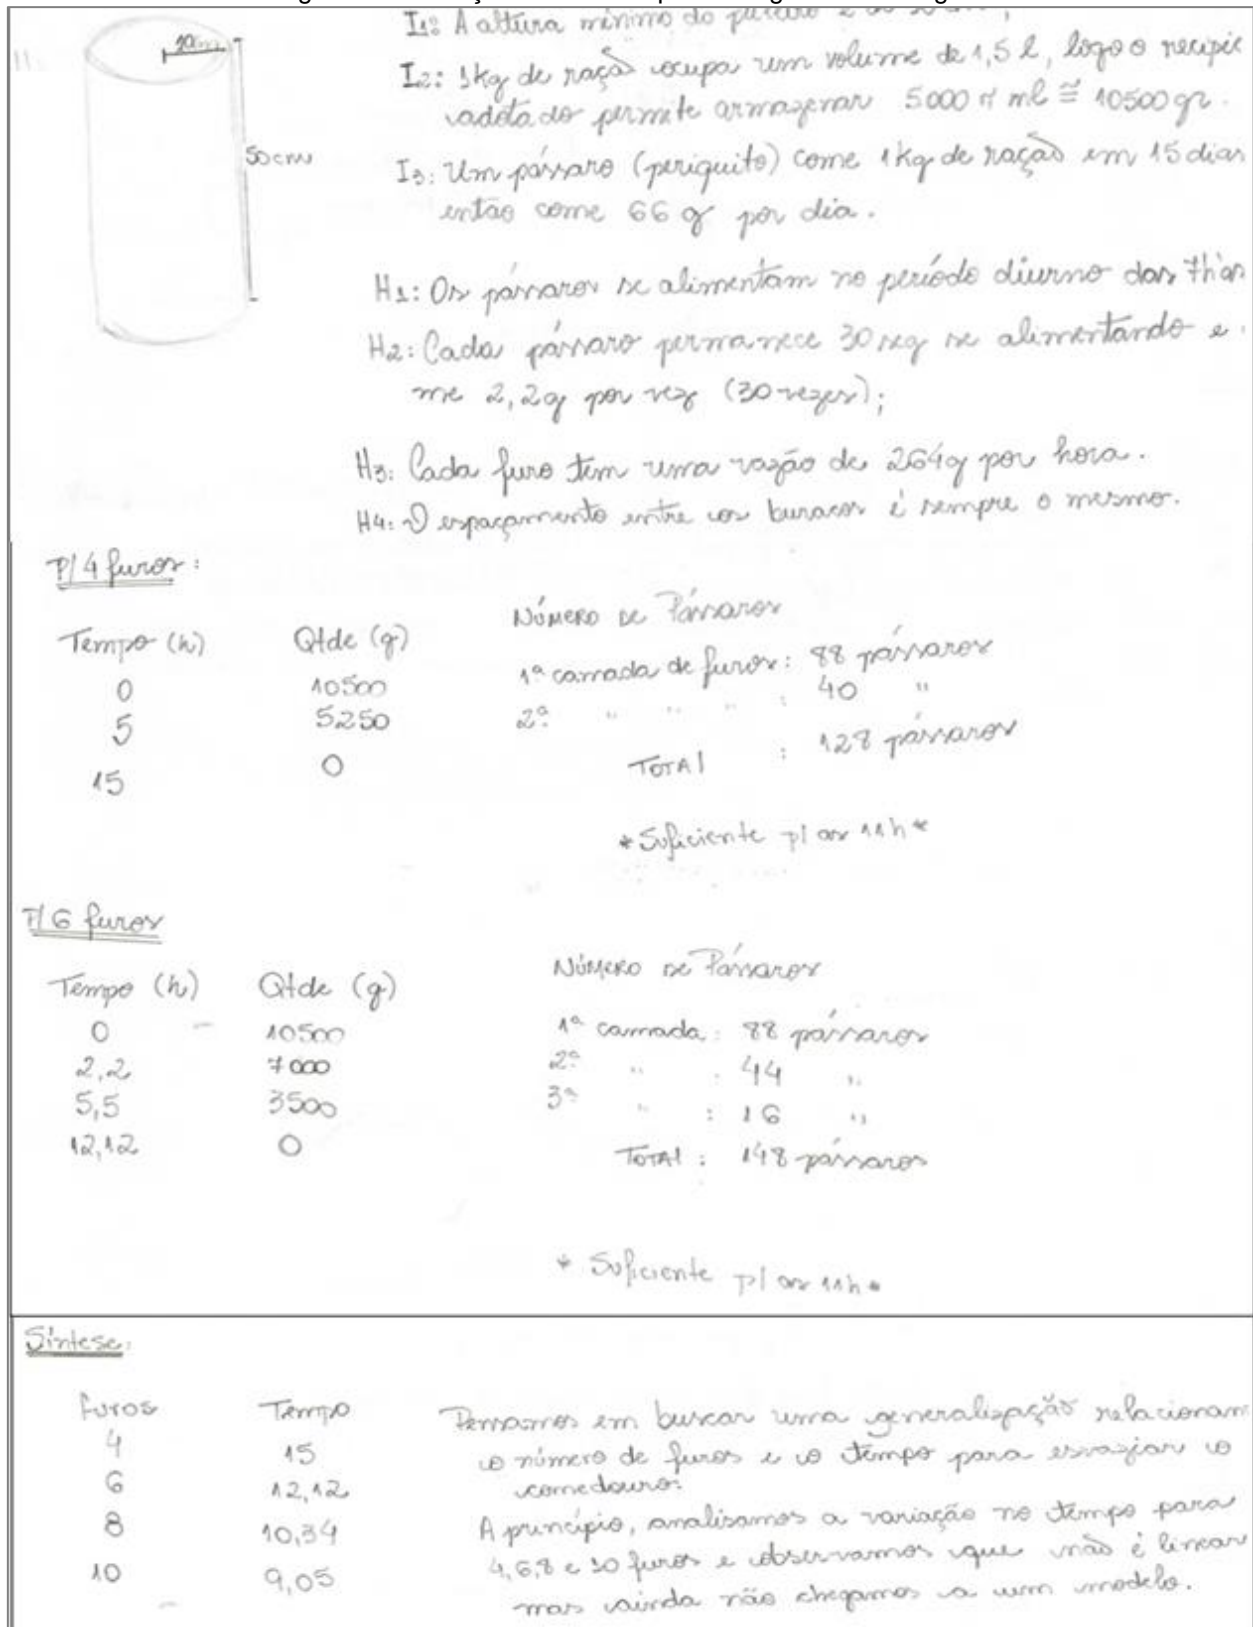 I1: A altura mínimo do
11.
20cm
I2: 1kg de ração ocupa um volume de 1,5 l, logo o recipie
adotado permite armazenar 5000 π ml ≅ 10500 gr.
50cm
I3: Um pássaro (periquito) come 1kg de ração em 15 dias
então come 66 g por dia.
H1: Os pássaros se alimentam no período diurno das 7h às
H2: Cada pássaro permanece 30 seg se alimentando e
me 2,2g por vez (30 vezes);
H3: Cada furo tem uma vazão de 264g por hora.
H4: O espaçamento entre os buracos é sempre o mesmo.
P/ 4 furos:
Tempo (h) Qtde (g) Número de Pássaros
0 10500 1ª camada de furos: 88 pássaros
5 5250 2ª " " " : 40 "
15 0 Total : 128 pássaros
*Suficiente p/ as 11h*
P/ 6 furos
Tempo (h) Qtde (g) Número de Pássaros
0 - 10500 1ª camada: 88 pássaros
2,2 7000 2ª " : 44 "
5,5 3500 3ª " : 16 "
12,12 0 Total: 148 pássaros
* Suficiente p/ as 11h *
Síntese:
Furos Tempo Pensamos em buscar uma generalização relacionam
4 15 o número de furos e o tempo para esvaziar o
6 12,12 comedouro.
8 10,34 A princípio, analisamos a variação no tempo para
10 9,05 4,6,8 e 10 furos e observamos que não é linear
mas ainda não chegamos a um modelo.